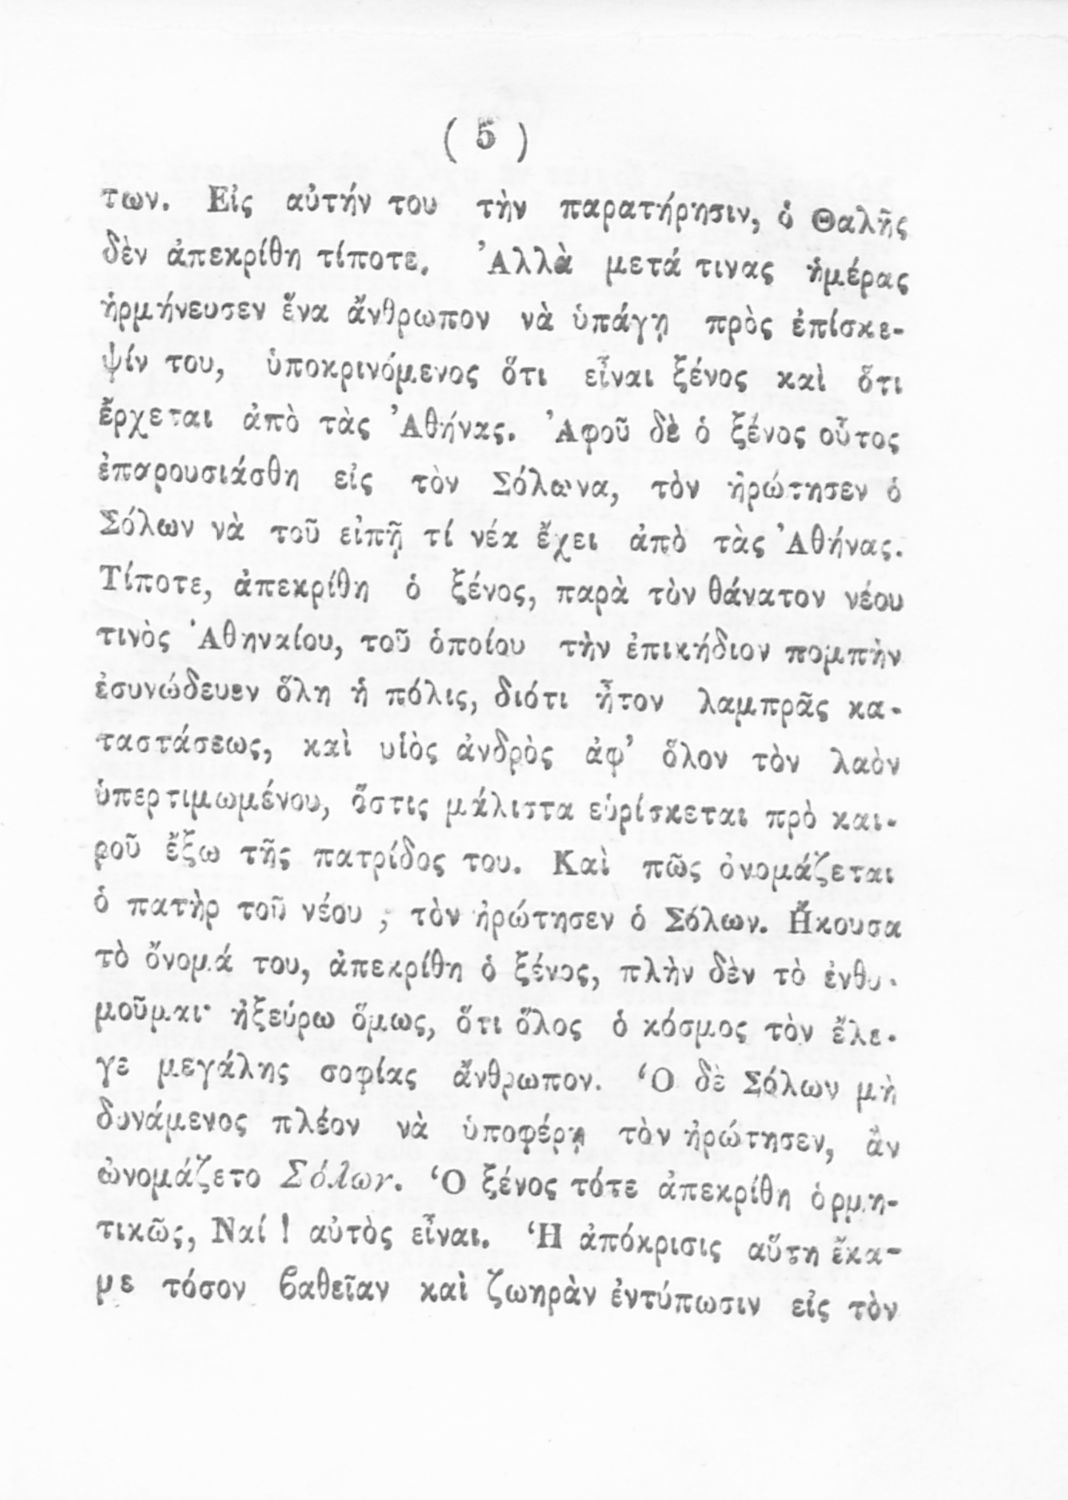 ( 5 )
των. Εἰς αὐτήν του τὴν παρατήρησιν, ὁ Θαλῆς
δὲν ἀπεκρίθη τίποτε. Ἀλλὰ μετά τινας ἡμέρας
ἡρμήνευσεν ἕνα ἄνθρωπον νὰ ὑπάγῃ πρὸς ἐπίσκε-
ψίν του, ὑποκρινόμενος ὅτι εἶναι ξένος καὶ ὅτι
ἔρχεται ἀπὸ τὰς Ἀθήνας. Ἀφοῦ δὲ ὁ ξένος οὗτος
ἐπαρουσιάσθη εἰς τὸν Σόλωνα, τὸν ἠρώτησεν ὁ
Σόλων νὰ τοῦ εἰπῇ τί νέα ἔχει ἀπὸ τὰς Ἀθήνας.
Τίποτε, ἀπεκρίθη ὁ ξένος, παρὰ τὸν θάνατον νέου
τινὸς Ἀθηναίου, τοῦ ὁποίου τὴν ἐπικήδιον πομπὴν
ἐσυνώδευεν ὅλη ἡ πόλις, διότι ἦτον λαμπρᾶς κα-
ταστάσεως, καὶ υἱὸς ἀνδρὸς ἀφ’ ὅλον τὸν λαὸν
ὑπερτιμωμένου, ὅστις μάλιστα εὑρίσκεται πρὸ και-
ροῦ ἔξω τῆς πατρίδος του. Καὶ πῶς ὀνομάζεται
ὁ πατὴρ τοῦ νέου ; τὸν ἠρώτησεν ὁ Σόλων. Ἤκουσα
τὸ ὄνομά του, ἀπεκρίθη ὁ ξένος, πλὴν δὲν τὸ ἐνθυ-
μοῦμαι· ἠξεύρω ὅμως, ὅτι ὅλος ὁ κόσμος τὸν ἔλε-
γε μεγάλης σοφίας ἄνθρωπον. Ὁ δὲ Σόλων μὴ
δυνάμενος πλέον νὰ ὑποφέρῃ τὸν ἠρώτησεν, ἂν
ὠνομάζετο Σόλων. Ὁ ξένος τότε ἀπεκρίθη ὁρμη-
τικῶς, Ναί ! αὐτὸς εἶναι. Ἡ ἀπόκρισις αὕτη ἔκα-
με τόσον βαθεῖαν καὶ ζωηρὰν ἐντύπωσιν εἰς τὸν